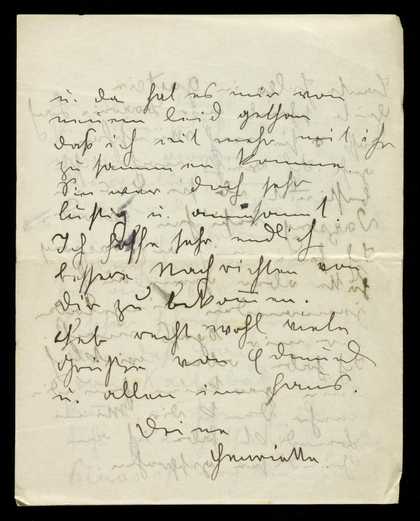 u. da hat es mir von
neuem leid gethan
daß ich nit mehr mit ihr
zusammen komme.
Sie war doch sehr
lustig u. amüsant.
Ich hoffe sehr endlich
bessere Nachrichten von
Dir zu bekommen.
Hab recht wohl viele
Grüße von Edmund
u. allen im Haus.
Deine
Henriette